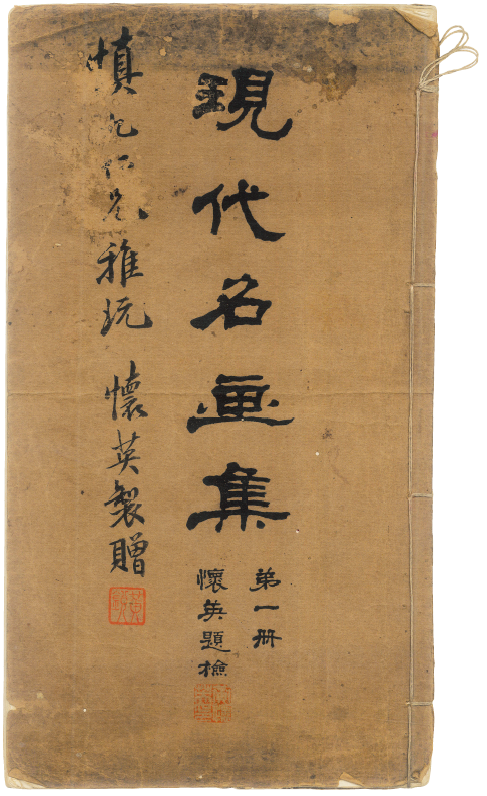 現代名画集
第一册
懷英題檢
慎 雅玩 懷英製贈